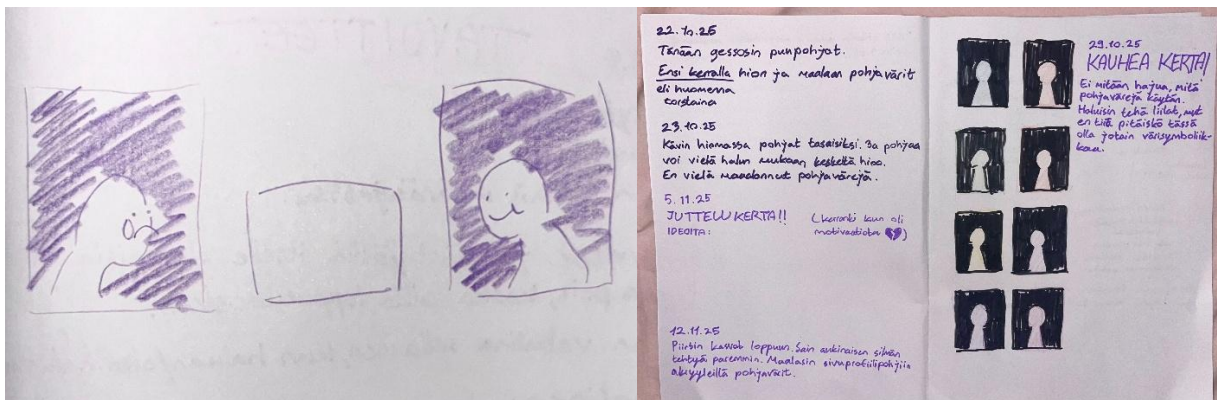 22.10.25
Tänään gessosin puupohjat.
Ensi kerralla hion ja maalaan pohjavärit
eli huomenna
torstaina
23.10.25
Kävin hiomassa pohjat tasaisiksi. 3a pohjaa
voi vielä halun mukaan keskeltä hioa.
En vielä maalannut pohjavärejä.
5.11.25
JUTTELUKERTA!!
IDEOITA:
kun oli
motivaatiota 💔)
12.11.25
Piirsin kasvot loppuun. Sain aukinaisen silmän
tehtyä paremmin. Maalasin sivuprofiilipohjiin
akryyleillä pohjavärit.
29.10.25
KAUHEA KERTA!
Ei mitään hajua, mitä
pohjavärejä käytän.
Haluisin tehä liilat, mut
en tiiä pitäiskö tässä
olla jotain värisymboliik-
kaa.